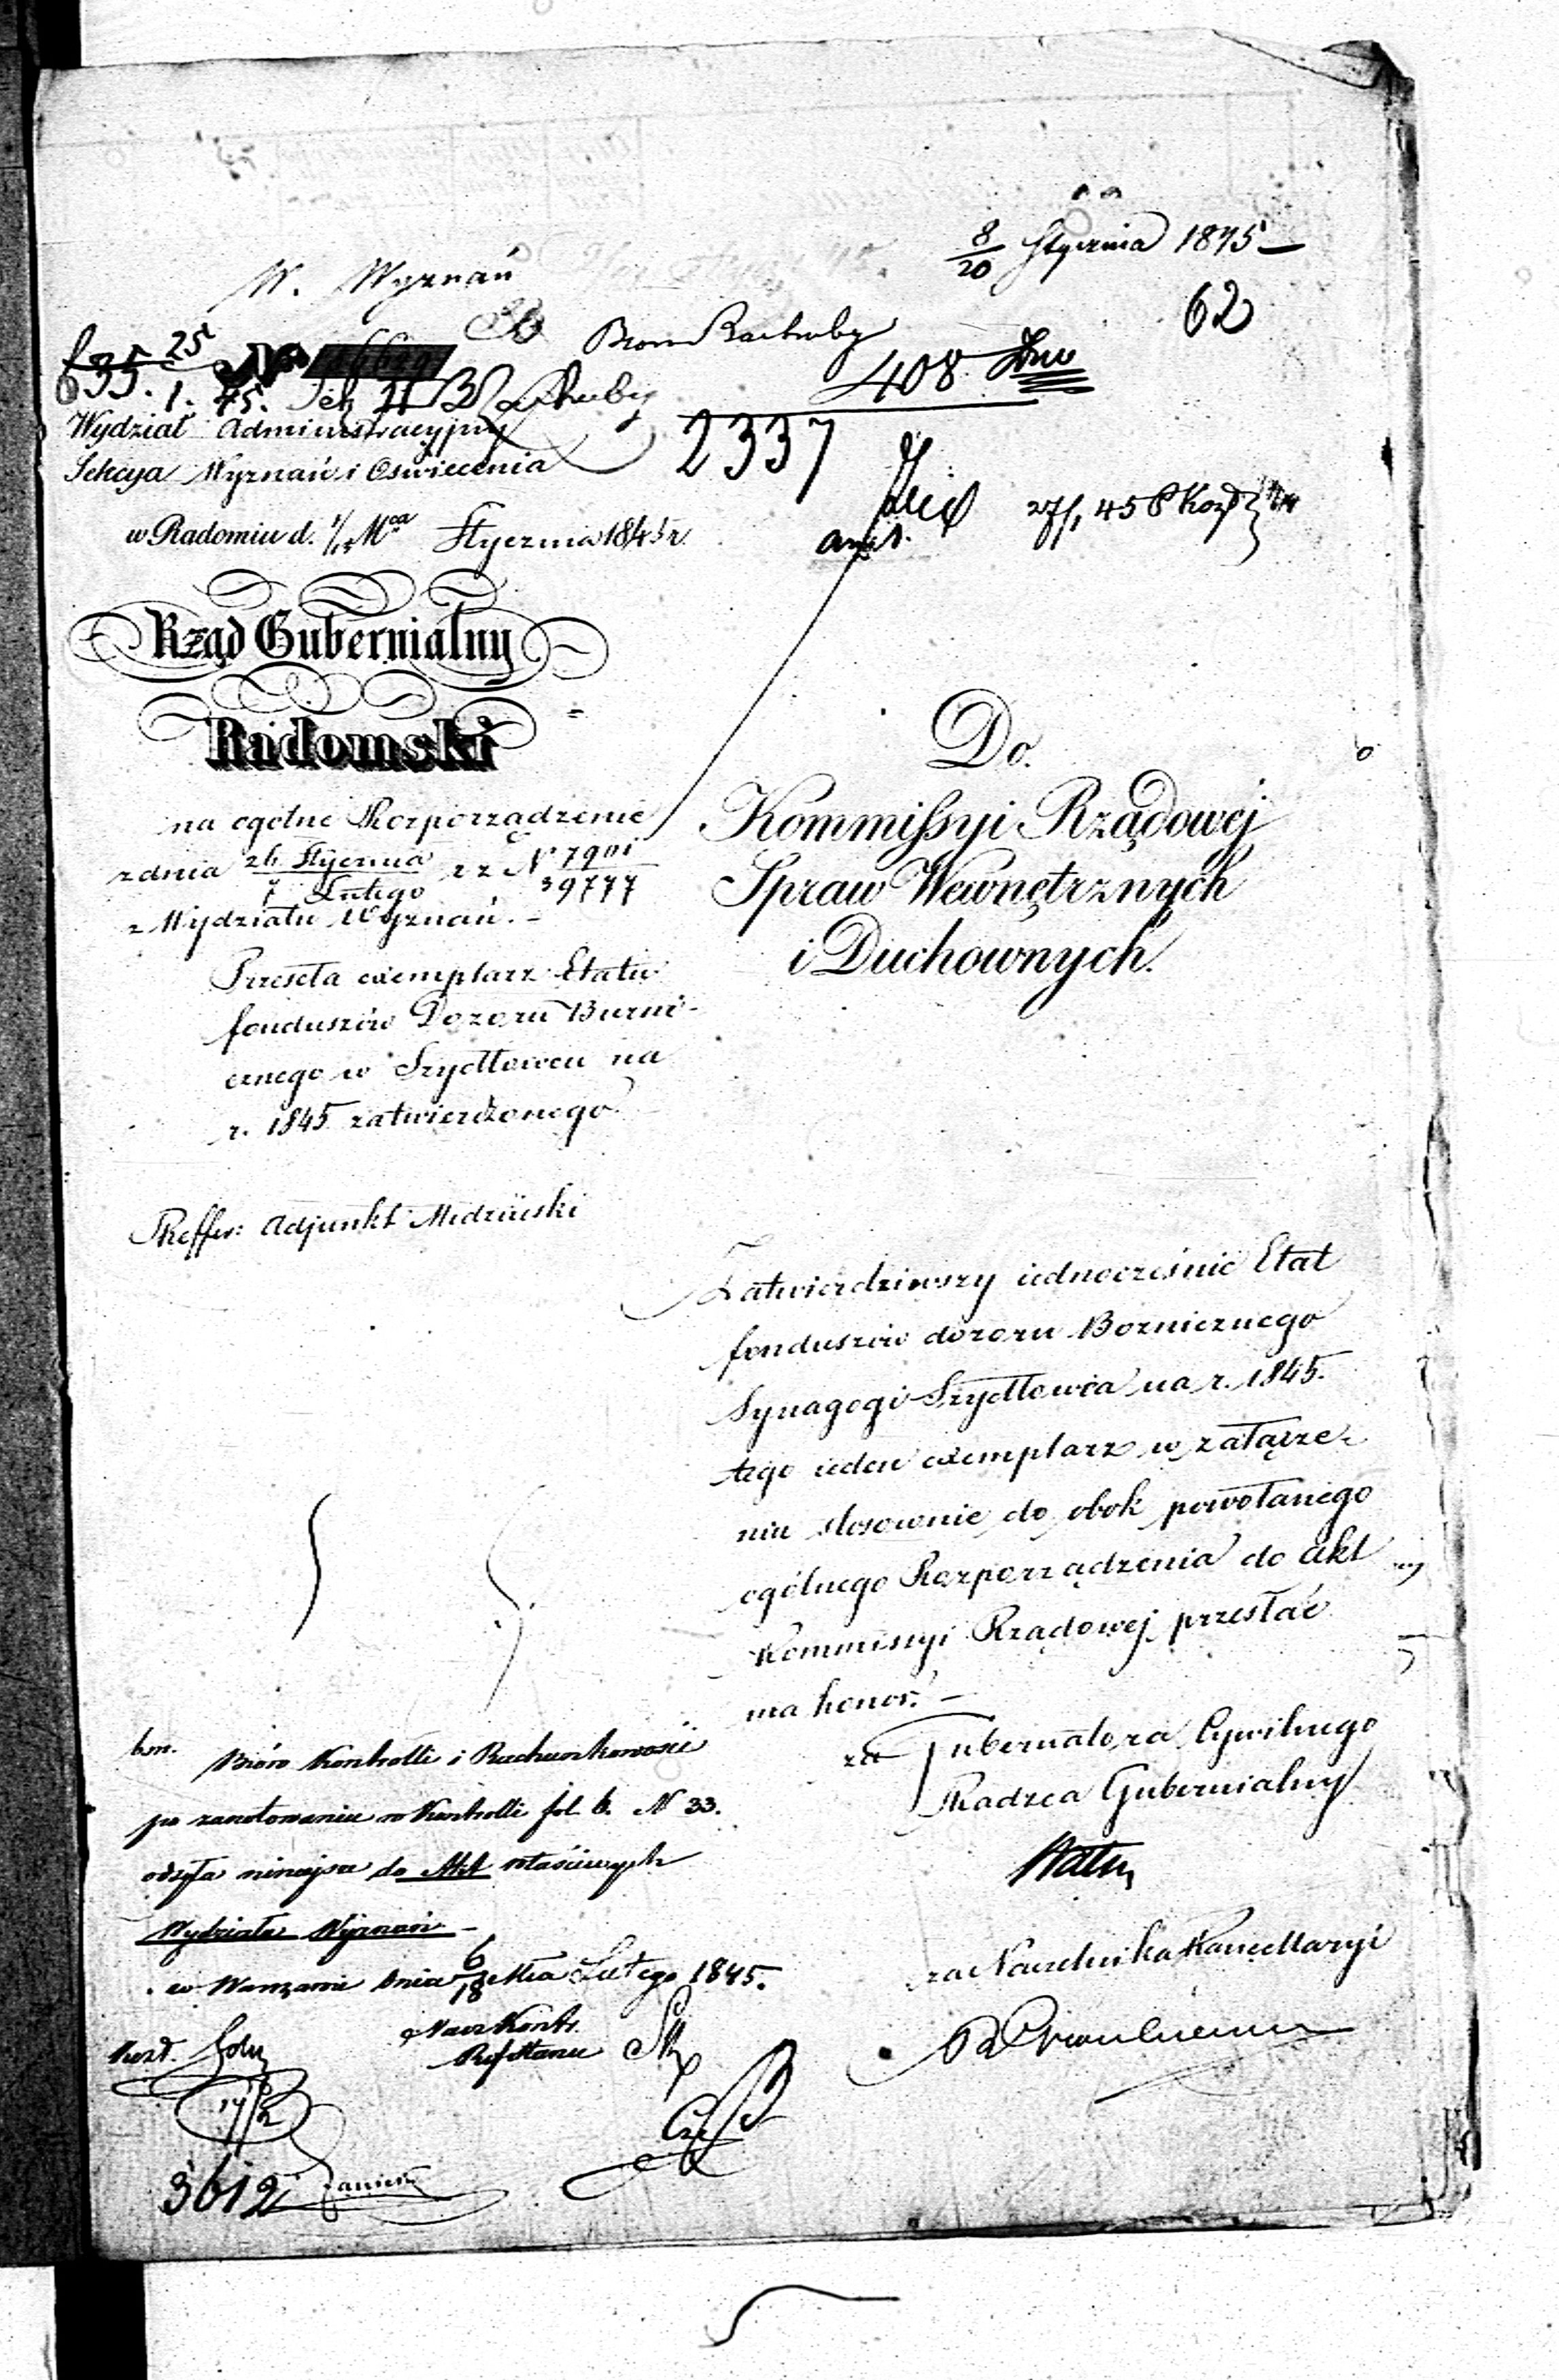 8/20 Stycznia 1845
W. Wyznań
62
408
635. 25/1. 45.
Wydział Administracyjny
2337
Sekcya Wyznań i Oswiecenia
w Radomiu d. Mca Stycznia 1845 r.
Rząd Gubernialny
Radomski
na ogólne Rozporządzenie
z dnia 26 Stycznia / 7 Lutego z z N 7901 / 39777
z Wydziału Wyznań. -
Przeseła exemplarz Etatu
funduszów Dozoru Burni-
cznego w Szydłowcu na
r. 1845 zatwierdzonego.
Reffer: Adjunkt
Do.
Kommissyi Rządowej
Spraw Wewnętrznych
i Duchownych.
Zatwierdziwszy iednocześnie Etat
funduszów dozoru Bozniczнego
Synagogi Szydłowca na r. 1845.
tego ieden exemplarz w załącze-
niu stosownie do obok powołanego
ogólnego Rozporządzenia do Akt
Kommissyi Rządowej przesłać
ma honor. -
za Gubernatora Cywilnego
Radzca Gubernialny
za Naczelnika Kancellaryi
Bióro Kontrolli i Rachunkowości
po zanotowaniu w Kontrolli fol 6. N 33.
odsyła niniejsze do Akt właściwych
Wydziału Wyznań -
w Warszawie dnia 6/18 Mca Lutego 1845.
Nacz Kontr.
17/2
3612